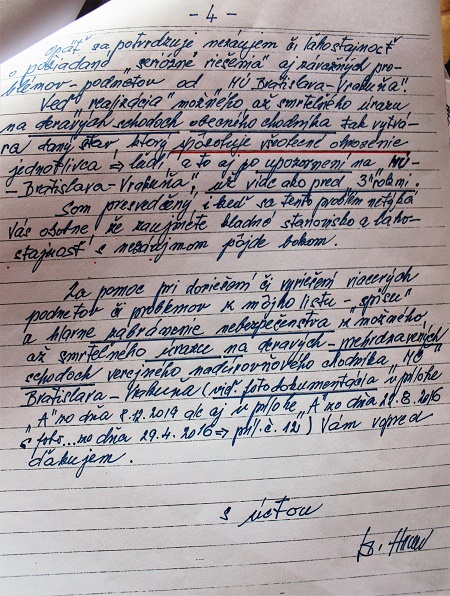 - 4 -
opäť sa potvrdzuje nezáujem či ľahostajnosť
o požiadané "seriózne riešenia" aj závažných pro-
blémov - podnetov od "MÚ Bratislava-Vrakuňa".
Veď "realizácia" možného až smrteľného úrazu
na deravých schodoch obecného chodníka tak vytvá-
ra/daný stav ktorý spôsobuje všeobecné ohrozenie
jednotlivca ⇒ ľudí, a to aj po upozornení na "MÚ-
-Bratislava-Vrakuňa", už viac ako pred "3" rokmi.
Som presvedčený i keď sa tento problém netýka
Vás osobne že zaujmete kladné stanovisko a ľaho-
stajnosť s nezáujmom pôjde bokom.
Za pomoc pri doriešení či vyriešení viacerých
podnetov či problémov z môjho listu - "spisu"
a hlavne zabránenie nebezpečenstva z "možného,
až smrteľného úrazu na deravých-prehrdzavených
schodoch verejného nadúrovňového chodníka "MÚ"
Bratislava-Vrakuňa (viď. fotodokumentácia v prílohe
"A" zo dňa 8.12.2019 ale aj v prílohe "A" zo dňa 29.8.2016
s foto...zo dňa 29.4.2016 ⇒ príl. č. 12) Vám vopred
ďakujem.
s úctou